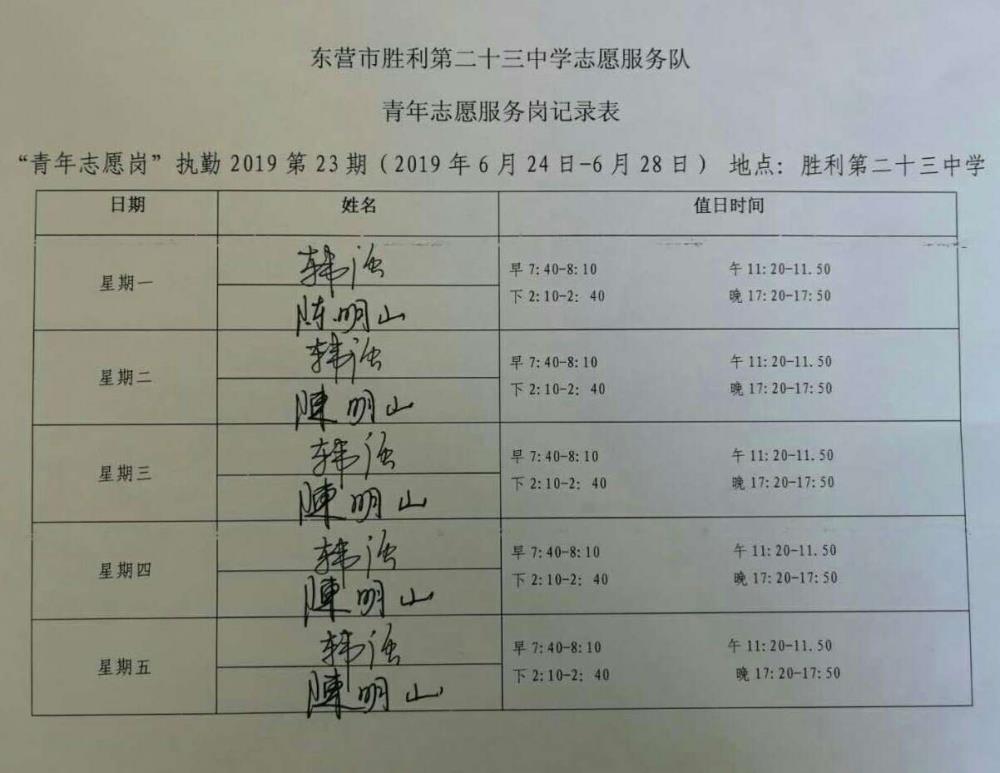 东营市胜利第二十三中学志愿服务队
青年志愿服务岗记录表
“青年志愿岗”执勤 2019 第 23 期（2019 年 6 月 24 日-6 月 28 日） 地点：胜利第二十三中学
日期 姓名 值日时间
星期一
韩
陈明山
早 7:40-8:10 午 11:20-11.50
下 2:10-2：40 晚 17:20-17:50
星期二
韩
陳明山
早 7:40-8:10 午 11:20-11.50
下 2:10-2：40 晚 17:20-17:50
星期三
韩
陳明山
早 7:40-8:10 午 11:20-11.50
下 2:10-2：40 晚 17:20-17:50
星期四
韩
陳明山
早 7:40-8:10 午 11:20-11.50
下 2:10-2：40 晚 17:20-17:50
星期五
韩
陳明山
早 7:40-8:10 午 11:20-11.50
下 2:10-2：40 晚 17:20-17:50